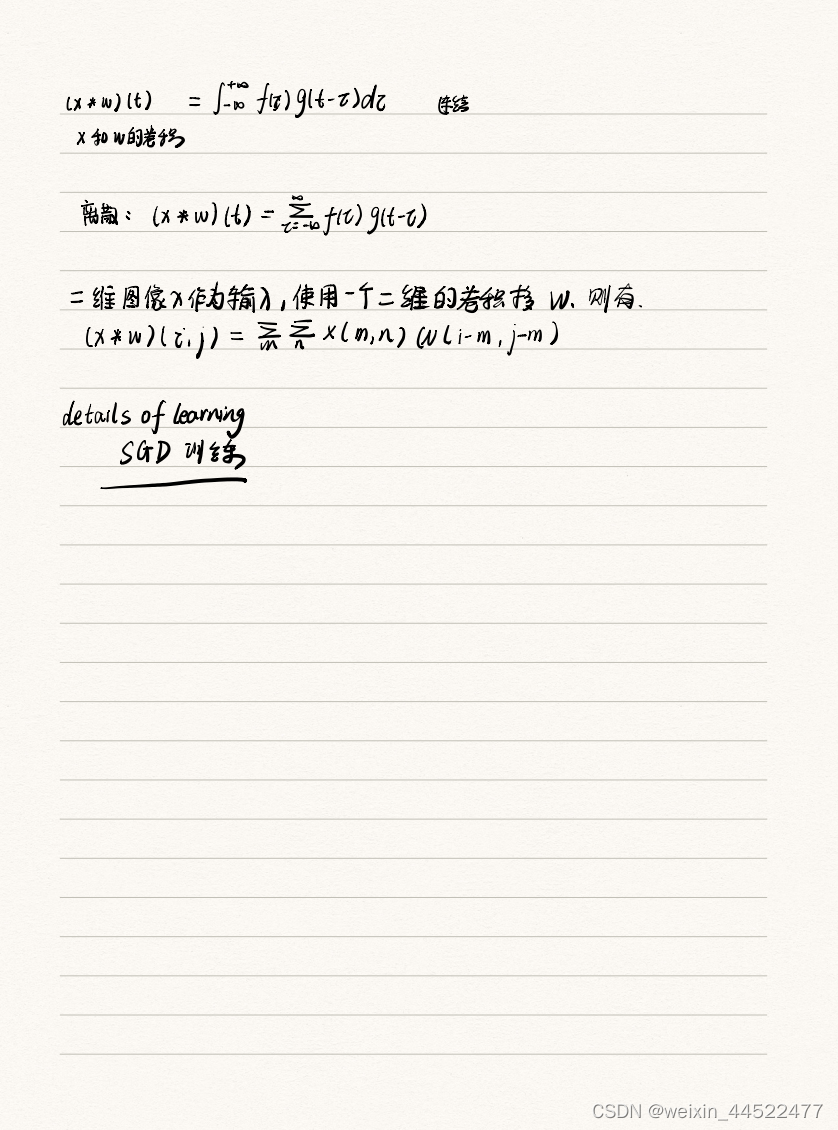 (x*w)(t) = ∫_{-∞}^{+∞} f(τ) g(t-τ)dτ 连续
x 和 w的卷积
离散: (x*w)(t) = ∑_{τ=-∞}^{∞} f(τ) g(t-τ)
二维图像x作为输入,使用一个二维的卷积核 w. 则有.
(x*w)(i,j) = ∑_m ∑_n x(m,n) w(i-m, j-m)
details of learning
SGD 训练
CSDN @weixin_44522477